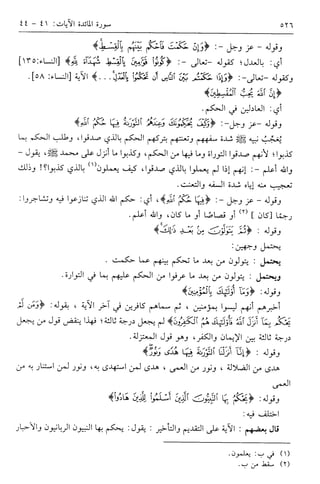 ٥٢٦ سورة المائدة الآيات: ٤١ - ٤٤
وقوله - عز وجل -: ﴿وَإِنْ حَكَمْتَ فَاحْكُم بَيْنَهُم بِالْقِسْطِ﴾
أي: بالعدل؛ كقوله -تعالى -: ﴿كُونُوا قَوَّامِينَ بِالْقِسْطِ شُهَدَاءَ لِلَّهِ﴾ [النساء: ١٣٥]
وكقوله -تعالى-: ﴿وَإِذَا حَكَمْتُم بَيْنَ النَّاسِ أَن تَحْكُمُوا بِالْعَدْلِ...﴾ الآية [النساء: ٥٨].
﴿إِنَّ اللَّهَ يُحِبُّ الْمُقْسِطِينَ﴾
أي: العادلين في الحكم.
وقوله -عز وجل-: ﴿وَكَيْفَ يُحَكِّمُونَكَ وَعِندَهُمُ التَّوْرَاةُ فِيهَا حُكْمُ اللَّهِ﴾
يُعجِّب نبيه ﷺ شدة سفههم وتعنتهم بتركهم الحكم بالذي صدقوا، وطلب الحكم بما
كذبوا؛ لأنهم صدقوا التوراة وما فيها من الحكم، وكذبوا ما أنزل على محمد ﷺ، يقول -
والله أعلم -: إنهم إذا لم يعملوا بالذي صدقوا، كيف يعملون(١) بالذي كذبوا؟! وذلك
تعجيب منه إياه شدة السفه والتعنت.
وقوله - عز وجل -: ﴿فِيهَا حُكْمُ اللَّهِ﴾، أي: حكم الله الذي تنازعوا فيه وتشاجروا:
رجمًا [كان ](٢) أو قصاصًا أو ما كان، والله أعلم.
وقوله : ﴿ثُمَّ يَتَوَلَّوْنَ مِن بَعْدِ ذَٰلِكَ﴾
يحتمل وجهين:
يحتمل : يتولون من بعد ما تحكم بينهم عما حكمت .
ويحتمل : يتولون من بعد ما عرفوا من الحكم عليهم بما في التوراة.
وقوله: ﴿وَمَا أُولَٰئِكَ بِالْمُؤْمِنِينَ﴾
أخبرهم أنهم ليسوا بمؤمنين ، ثم سماهم كافرين في آخر الآية ، بقوله: ﴿وَمَن لَّمْ
يَحْكُم بِمَا أَنزَلَ اللَّهُ فَأُولَٰئِكَ هُمُ الْكَافِرُونَ﴾ لم يجعل درجة ثالثة؛ فهذا ينقض قول من يجعل
درجة ثالثة بين الإيمان والكفر، وهو قول المعتزلة.
وقوله : ﴿إِنَّا أَنزَلْنَا التَّوْرَاةَ فِيهَا هُدًى وَنُورٌ﴾
هدى من الضلالة ، ونور من العمى ، هدى لمن استهدى به، ونور لمن استنار به من
العمى
وقوله: ﴿يَحْكُمُ بِهَا النَّبِيُّونَ الَّذِينَ أَسْلَمُوا لِلَّذِينَ هَادُوا﴾
اختلف فيه:
قال بعضهم : الآية على التقديم والتأخير : يقول: يحكم بها النبيون الربانيون والأحبار
(١) في ب: يعلمون.
(٢) سقط من ب.